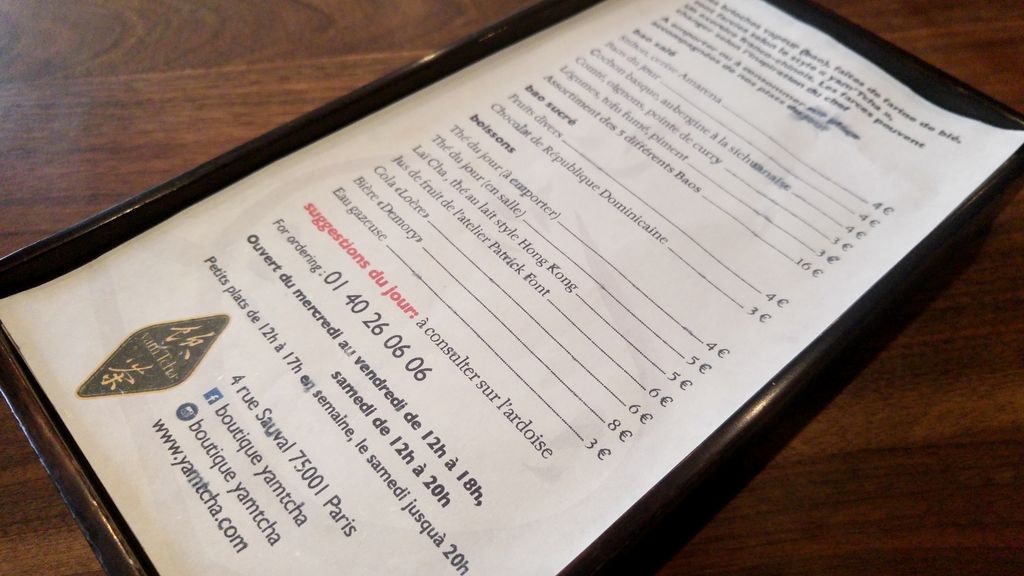 bao salé
Sthon, cerise Amarena 4 €
Pain du jour 4 €
Cochon basque, aubergine à la sichuanaise 4 €
Comté, oignons, pointe de curry 3 €
Légumes, tofu fumé, piment 3 €
Assortiment des 5 différents Baos 16 €
bao sucré
Fruits divers 4 €
Chocolat de République Dominicaine 3 €
boissons
Thé du jour (à emporter) 4 €
Thé du jour (en salle) 5 €
Lai Cha, thé au lait style Hong Kong 5 €
Jus de fruit de l'atelier Patrick Font 6 €
Cola «Loère» 6 €
Bière «Demory» 8 €
Eau gazeuse 3 €
suggestions du jour: à consulter sur l'ardoise
For ordering : 01 40 26 06 06
Ouvert du mercredi au vendredi de 12h à 18h,
samedi de 12h à 20h
Petits plats de 12h à 17h en semaine, le samedi jusquà 20h
4 rue Sauval 75001 Paris
boutique yamtcha
boutique yamtcha
www.yamtcha.com